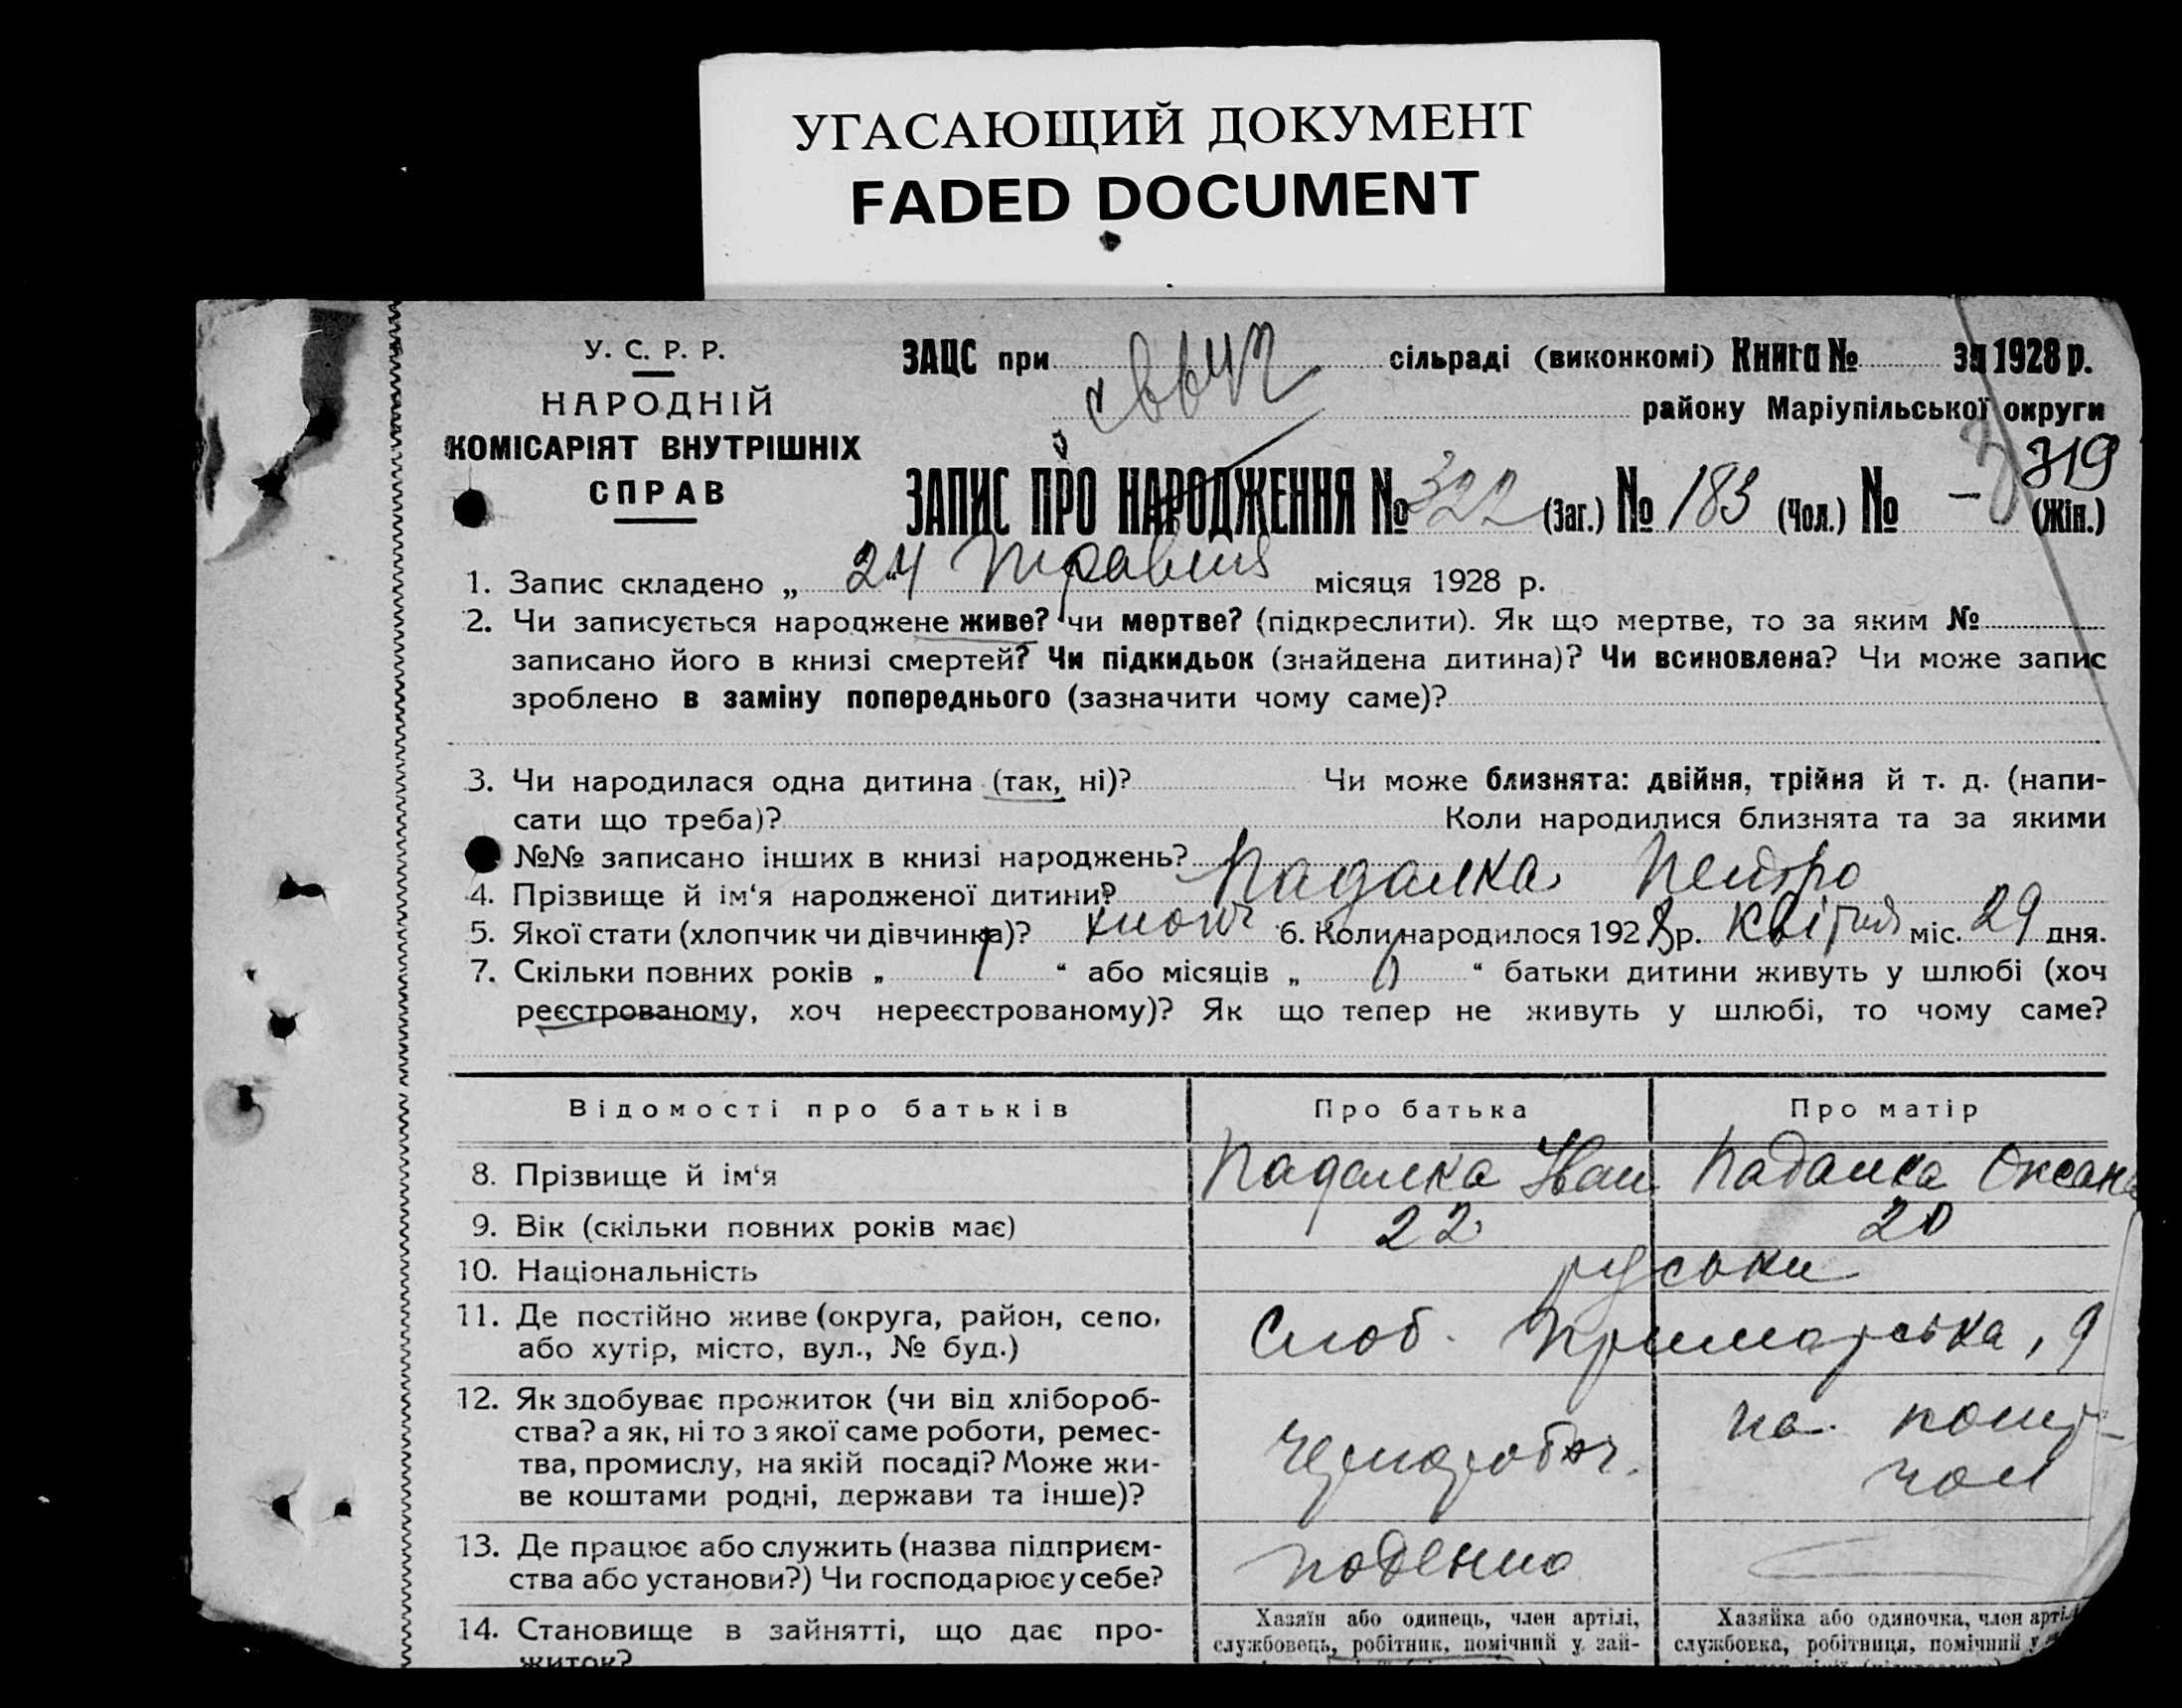 УГАСАЮЩИЙ ДОКУМЕНТ
FADED DOCUMENT
У. С. Р. Р.
НАРОДНІЙ
КОМІСАРІЯТ ВНУТРІШНІХ
СПРАВ
ЗАЦС при сільраді (виконкомі) Книга № за 1928 р.
району Маріупільської округи
319
ЗАПИС ПРО НАРОДЖЕННЯ № 322 (Заг.) № 183 (Чол.) № — (Жін.)
1. Запис складено „ 24 травня місяця 1928 р.
2. Чи записується народжене живе? чи мертве? (підкреслити). Як що мертве, то за яким №
записано його в книзі смертей? Чи підкидьок (знайдена дитина)? Чи всиновлена? Чи може запис
зроблено в заміну попереднього (зазначити чому саме)?
3. Чи народилася одна дитина (так, ні)? Чи може близнята: двійня, трійня й т. д. (напи-
сати що треба)? Коли народилися близнята та за якими
№№ записано інших в книзі народжень?
4. Прізвище й ім‘я народженої дитини? Падалка Петро
5. Якої стати (хлопчик чи дівчинка)? хлопч 6. Коли народилося 1928 р. квітня міс. 29 дня.
7. Скільки повних років „ 1 “ або місяців „ “ батьки дитини живуть у шлюбі (хоч
реєстрованому, хоч нереєстрованому)? Як що тепер не живуть у шлюбі, то чому саме?
Відомості про батьків Про батька Про матір
8. Прізвище й ім‘я Падалка Іван Падалка Оксана
9. Вік (скільки повних років має) 22 20
10. Національність руськи
11. Де постійно живе (округа, район, село,
або хутір, місто, вул., № буд.) Слоб. Приморська, 9
12. Як здобуває прожиток (чи від хлібороб-
ства? а як, ні то з якої саме роботи, ремес-
тва, промислу, на якій посаді? Може жи-
ве коштами родні, держави та інше)?
чернороб
на
13. Де працює або служить (назва підприєм-
ства або установи?) Чи господарює у себе?
поденно
14. Становище в зайнятті, що дає про-
житок?
Хазяїн або одинець, член артілі,
службовець, робітник, помічний у зай-
Хазяйка або одиночка, член арті
службовка, робітниця, помічний у